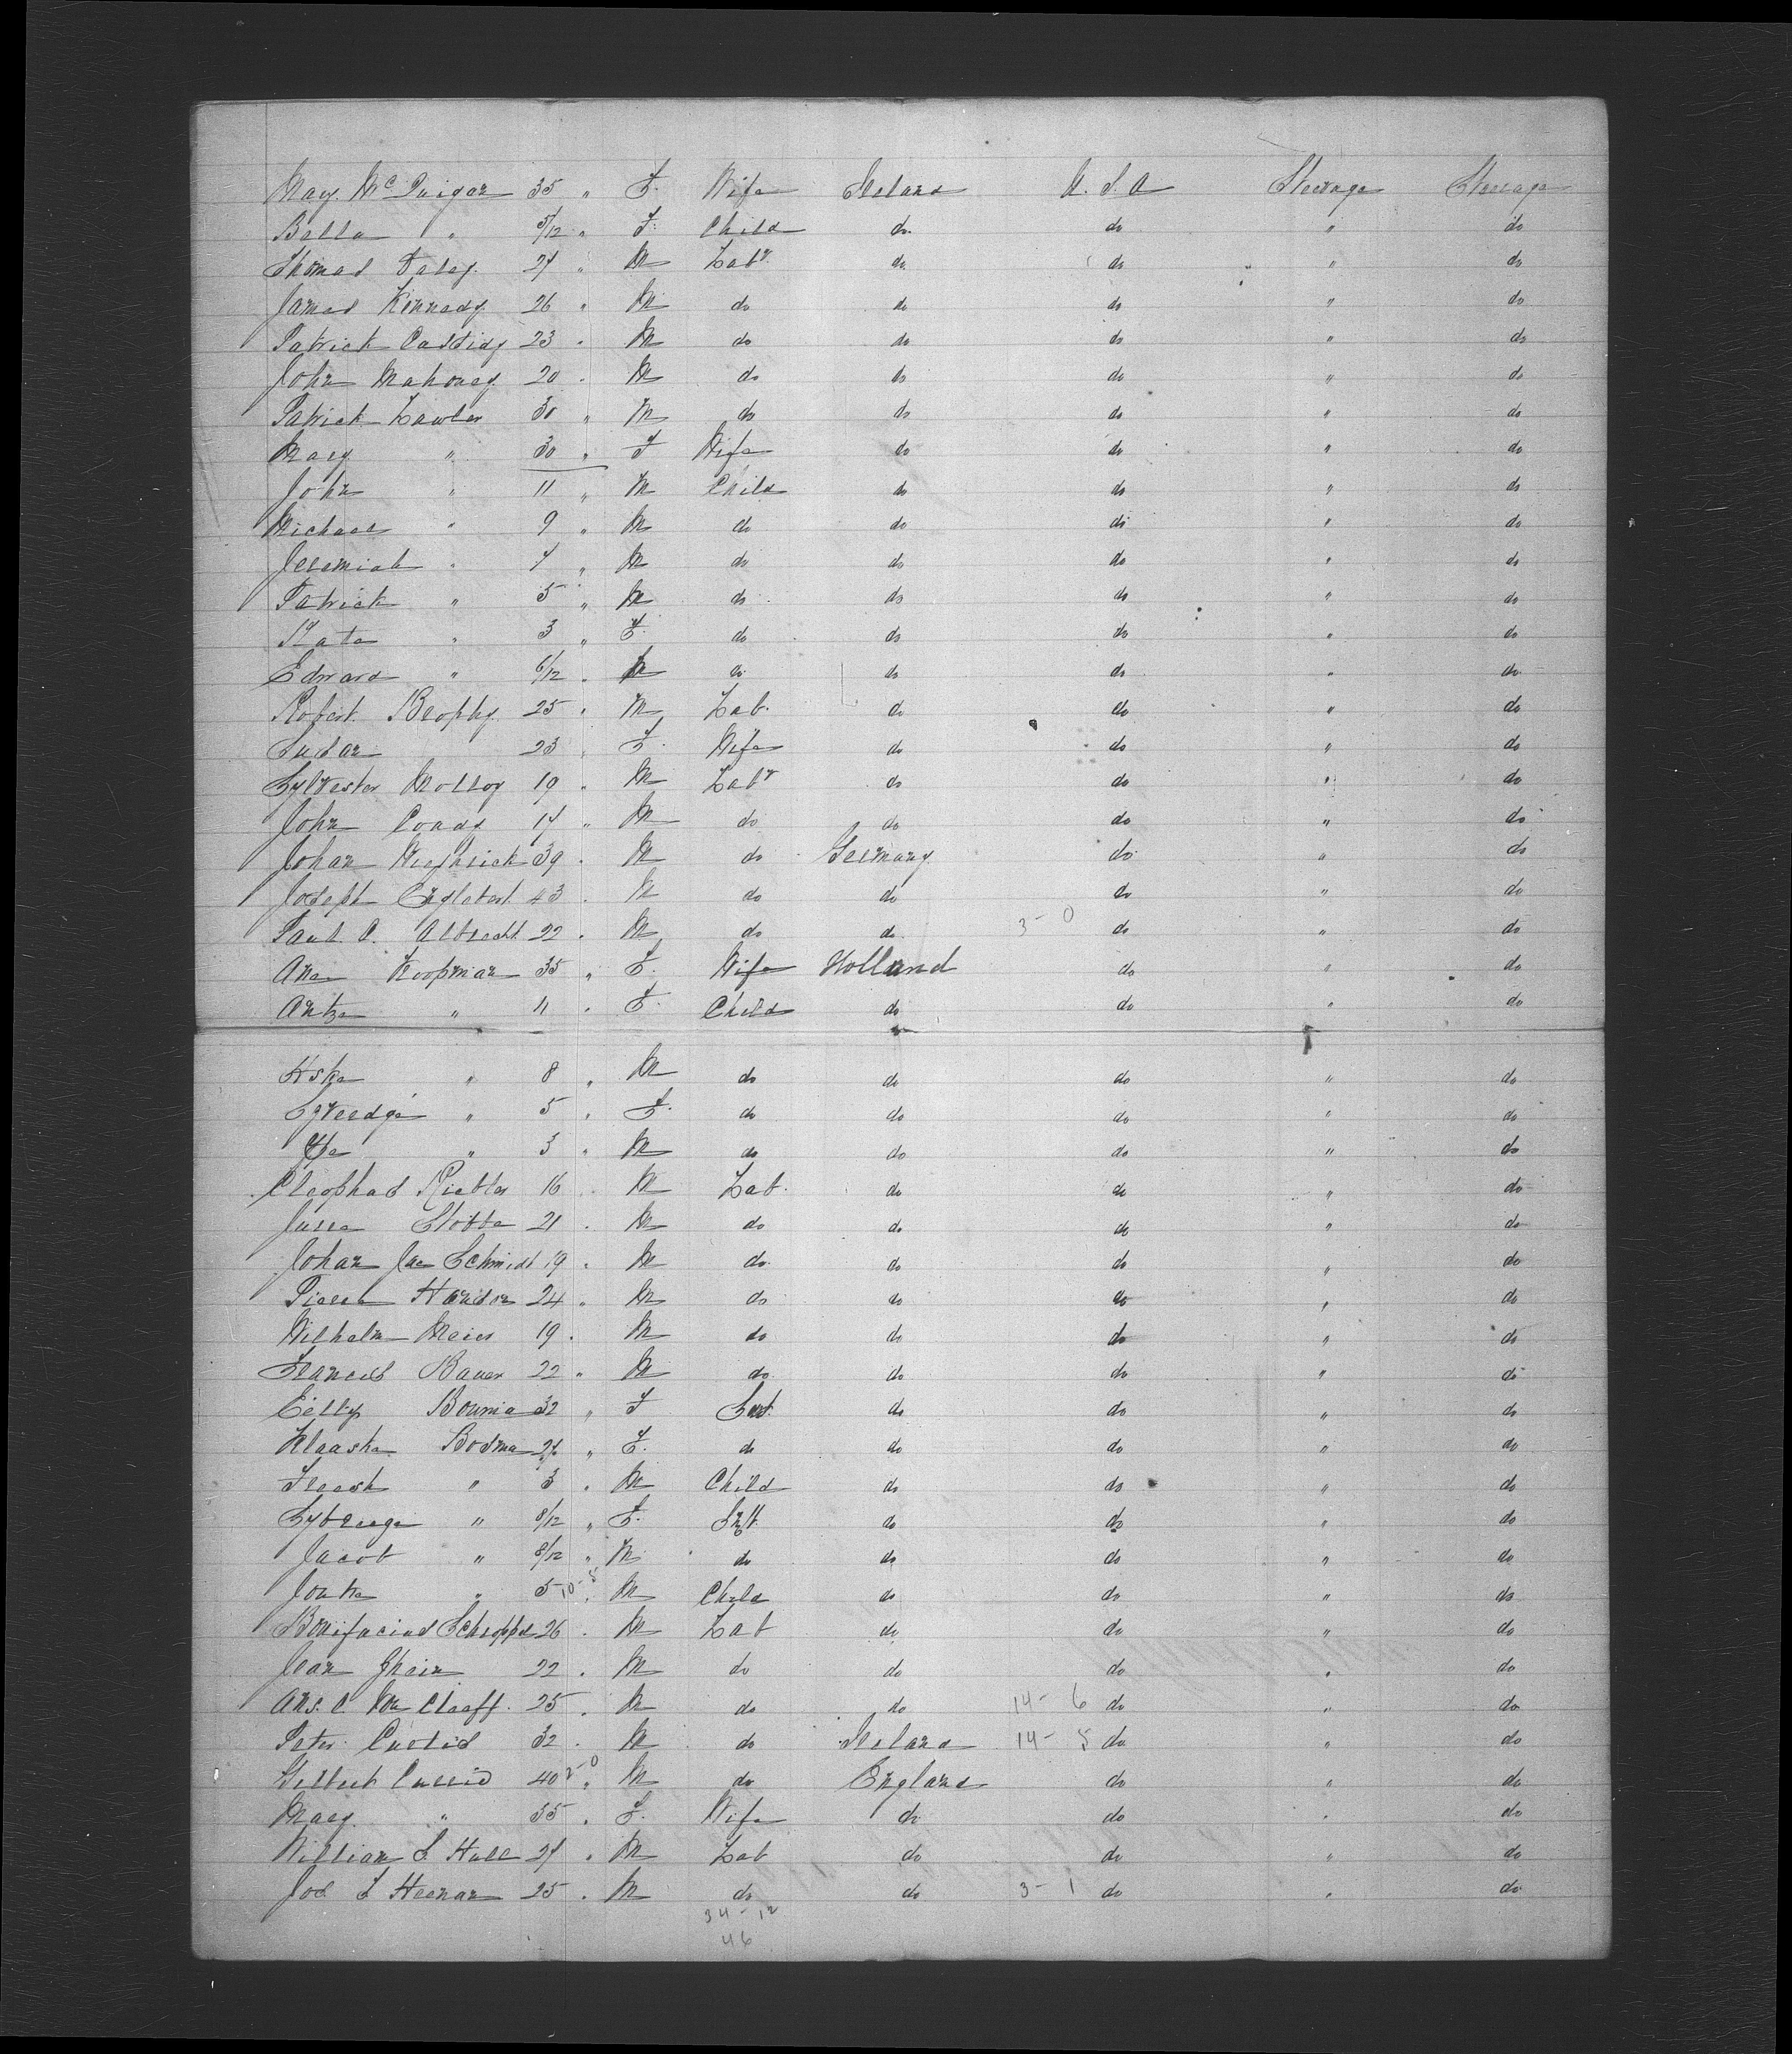 Mary Mc Guigan 35 " F. Wife Ireland U. S. A Steerage Steerage
Bella " 5/12 " F. Child do. do " do
Thomas Foley 27 " M Labr. do do " do
James Kennedy 26 " M do do do " do
Patrick Cassidy 23 " M do do do " do
John Mahoney 20 " M do do do " do
Patrick Lawler 30 " M do do do " do
Mary " 30 " F Wife do do " do
John " 11 " M Child do do " do
Michael " 9 " M do do do " do
Jeremiah " 7 " M do do do " do
Patrick " 5 " M do do do " do
Kate " 3 " F. do do do " do
Edward " 6/12 " M do do do " do
Robert Brophy 25 " M Lab. do do " do
Susan 23 " F. Wife do do " do
Sylvester Molloy 19 " M Labr do do " do
John Coady 17 " M do do do " do
Johan 39 " M do Germany do " do
Joseph Englebert 43 " M do do do " do
Paul C. Albrecht 22 " M do do 3 - 0 do " do
Ane Koopman 35 " F. Wife Holland do " do
Antze " 11 " F. Child do do " do
" 8 " M do do do " do
" 5 " F. do do do " do
" 3 " M do do do " do
Cleophas Richter 16 " M Lab. do do " do
Stobbe 21 " M do do do " do
Johan Jac Schmidt 19 " M do do do " do
Pierre 24 " M do do do " do
Wilhelm Meier 19 " M do do do " do
Francis Bauer 22 " M do do do " do
Bouma 32 " F do do " do
Klaaske Bosma 27 " F. do do do " do
" 3 " M Child do do " do
" 8/12 " F. Inft. do do " do
Jacob " 8/12 " M do do do " do
Jouke " 5 10 - 5 " M Child do do " do
Bonifacius 26 " M Lab do do " do
Jean 22 " M do do do " do
25 " M do do 14 - 6 do " do
Peter 32 " M do Ireland 14 - 5 do " do
40 2 - 0 " M do England do " do
Mary " 35 " F. Wife do do " do
William S Hall 27 " M Lab do do " do
Jos S Heenan 25 " M do do 3 - 1 do " do
34 - 12
46